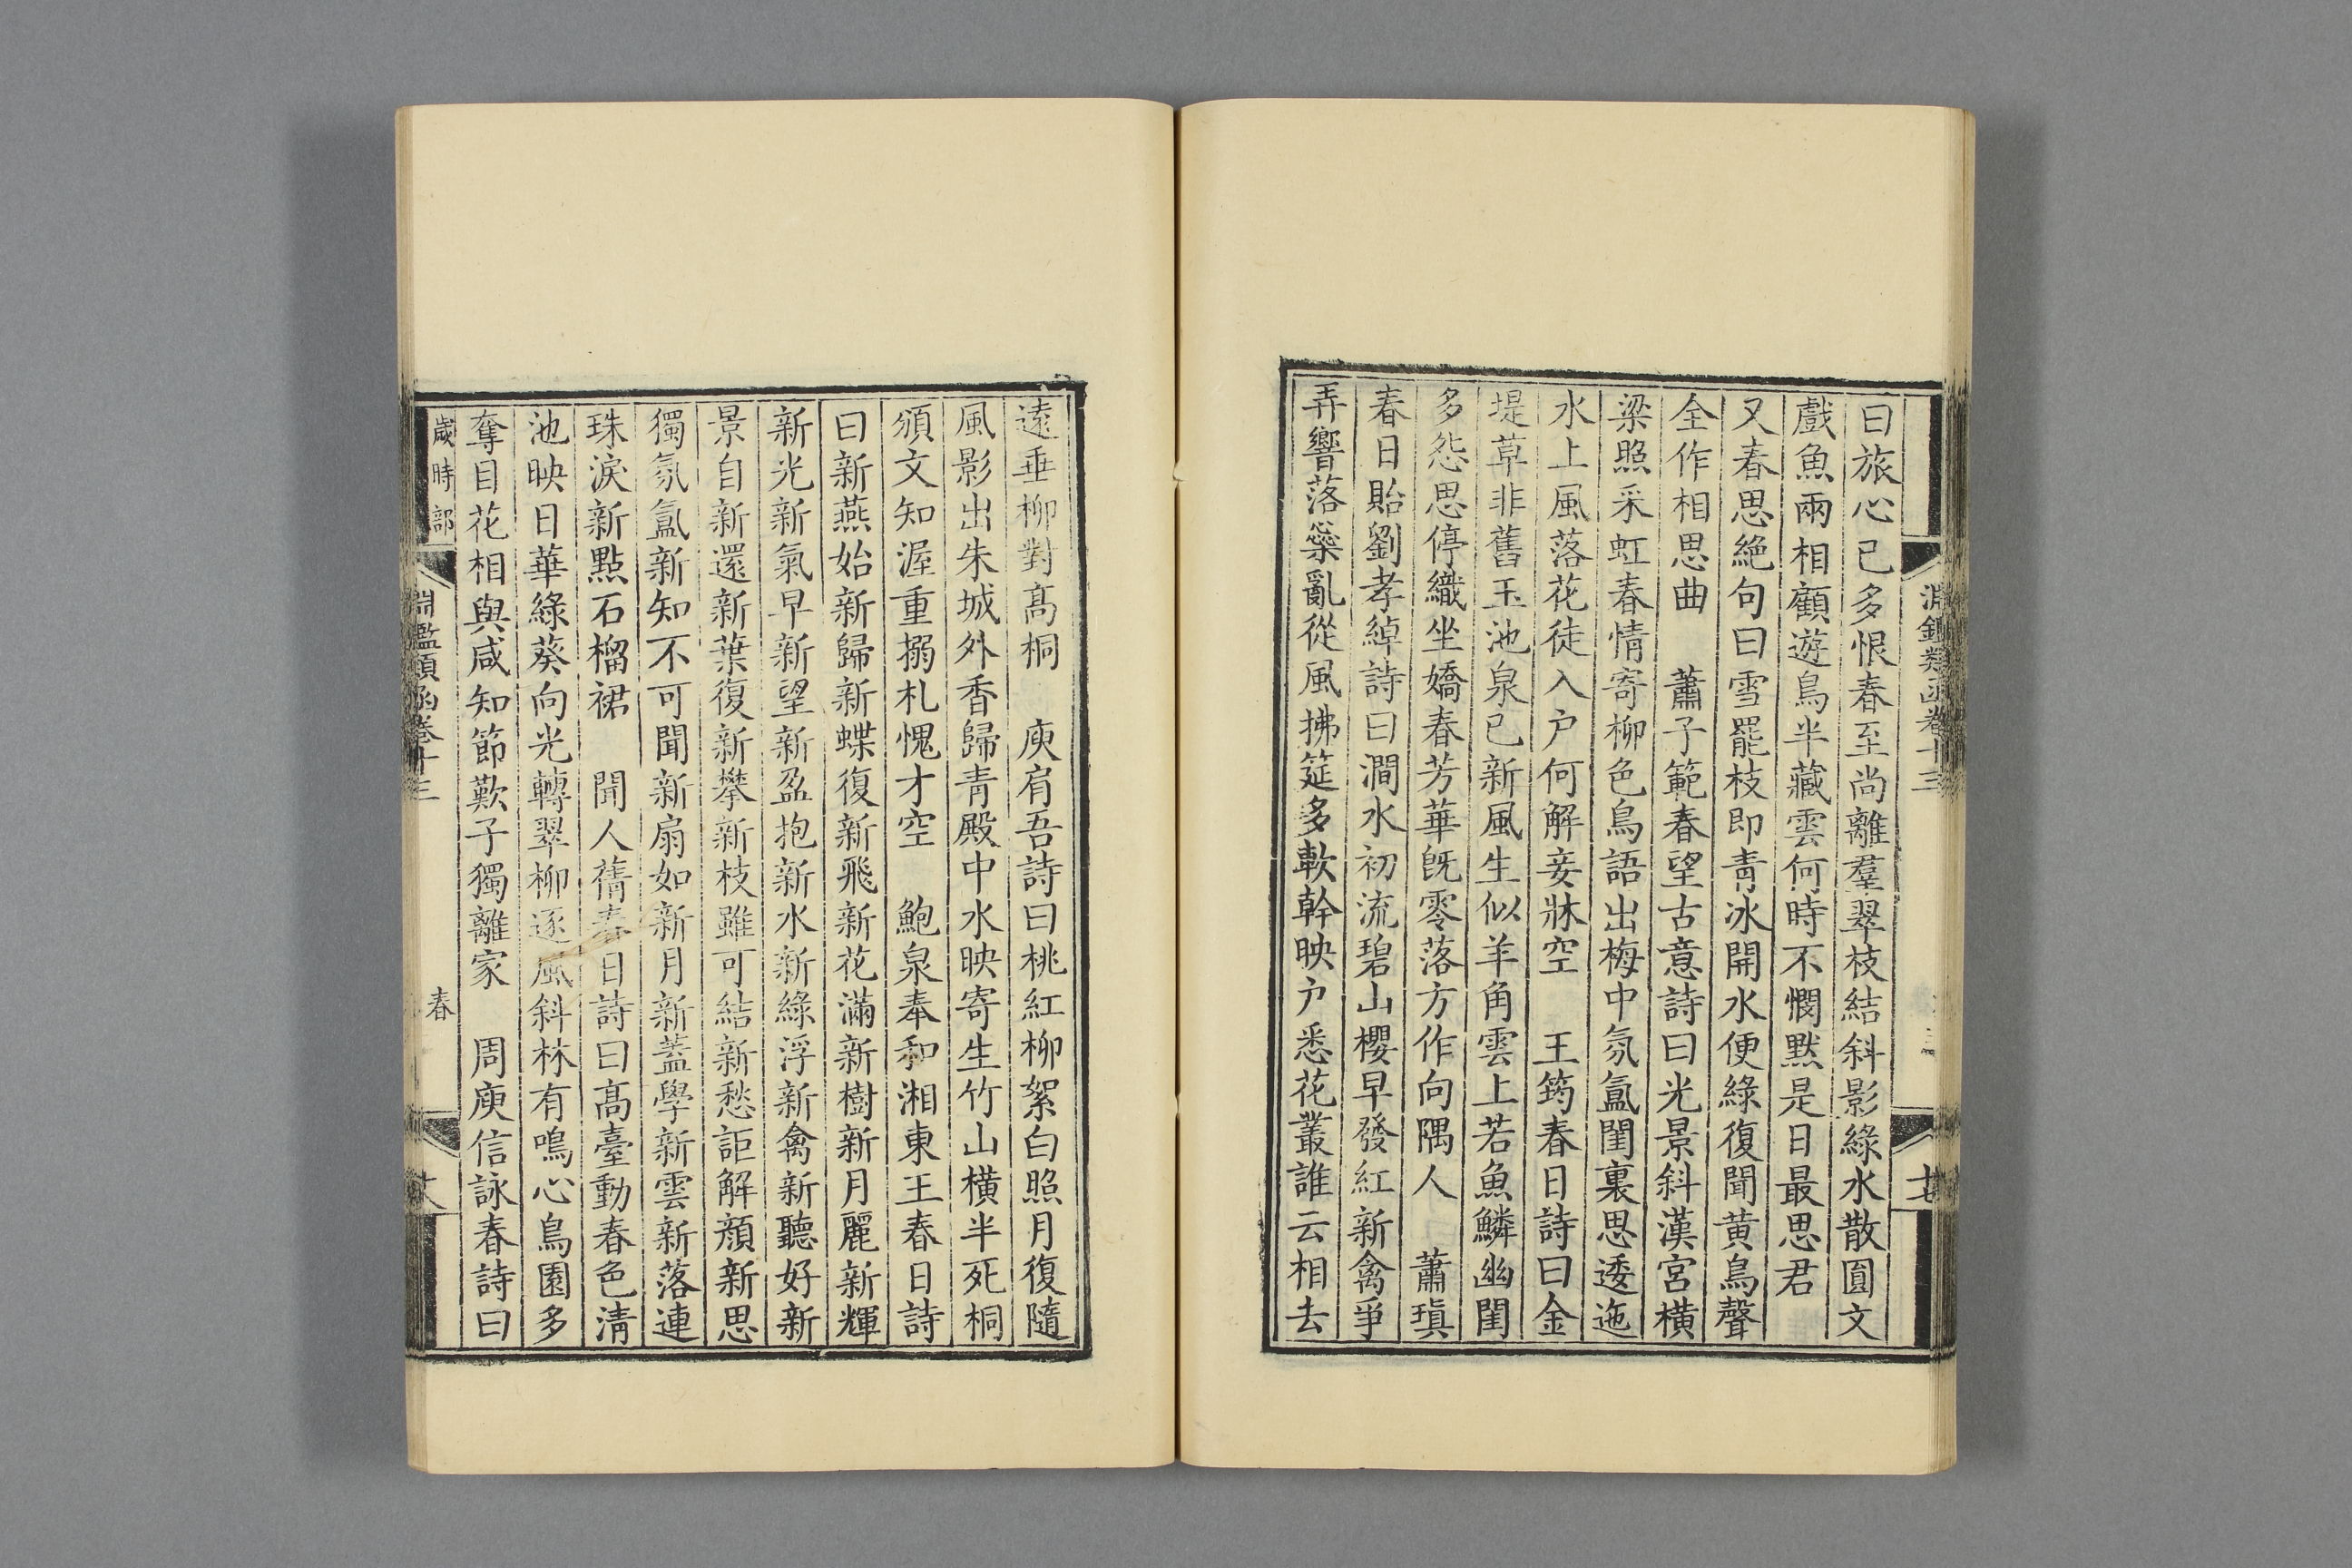 淵鑑類函卷十三
曰旅心已多恨春至尚離羣翠枝結斜影綠水散圓文
戲魚兩相顧遊鳥半藏雲何時不憫默是日最思君
又春思絕句曰雪罷枝即靑冰開水便綠復聞黄鳥聲
全作相思曲　蕭子範春望古意詩曰光景斜漢宮橫
梁照采虹春情寄柳色鳥語出梅中氛氲閨裏思逶迤
水上風落花徒入户何解妾牀空　王筠春日詩曰金
堤草非舊玉池泉已新風生似羊角雲上若魚鱗幽閨
多怨思停織坐嬌春芳華旣零落方作向隅人　蕭瑱
春日貽劉孝綽詩曰澗水初流碧山櫻早發紅新禽爭
弄響落蘂亂從風拂筵多軟幹映户悉花叢誰云相去
遠垂柳對髙桐　庾肩吾詩曰桃紅柳絮白照月復隨
風影出朱城外香歸靑殿中水映寄生竹山橫半死桐
頒文知渥重搦札愧才空　鮑泉奉和湘東王春日詩
曰新燕始新歸新蝶復新飛新花滿新樹新月麗新輝
新光新氣早新望新盈抱新水新綠浮新禽新聽好新
景自新還新葉復新攀新枝雖可結新愁詎解顔新思
獨氛氲新知不可聞新扇如新月新蓋學新雲新落連
珠淚新點石榴裙　聞人蒨春日詩曰髙臺動春色淸
池映日華綠葵向光轉翠柳逐風斜林有鳴心鳥園多
奪目花相與咸知節歎子獨離家　周庾信詠春詩曰
歲時部　淵鑑類函卷十三　春